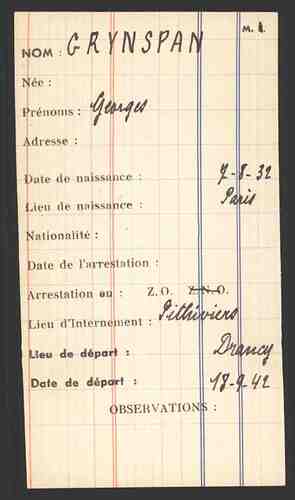 M. 1.
NOM : GRYNSPAN
Née :
Prénoms : Georges
Adresse :
Date de naissance : 7-8-32
Lieu de naissance : Paris
Nationalité :
Date de l'arrestation :
Arrestation en : Z.O. Z.N.O.
Lieu d'Internement : Pithiviers
Lieu de départ : Drancy
Date de départ : 18-9-42
OBSERVATIONS :